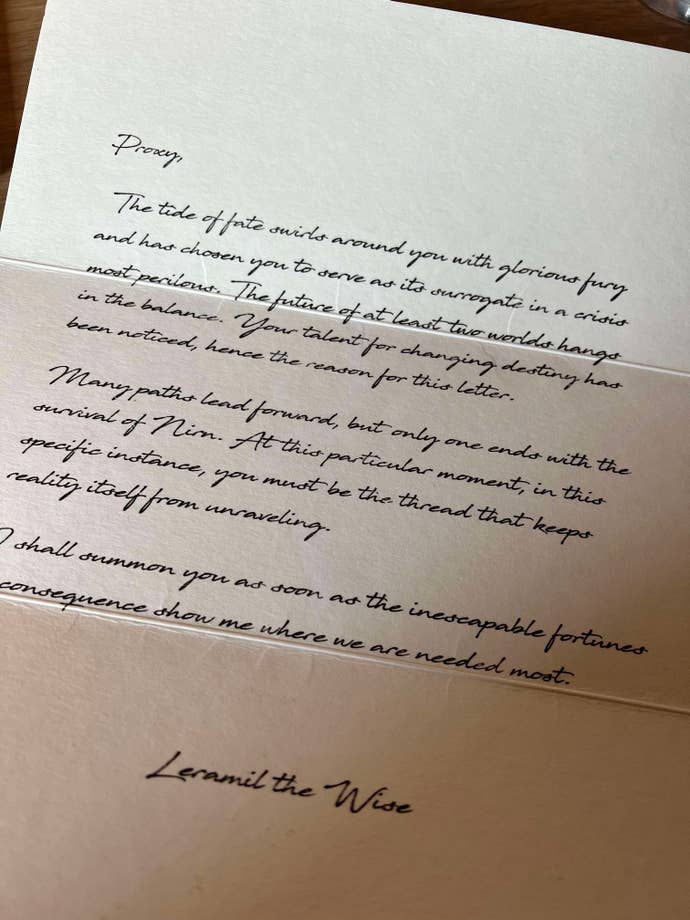 Proxy,
The tide of fate swirls around you with glorious fury
and has chosen you to serve as its surrogate in a crisis
most perilous. The future of at least two worlds hangs
in the balance. Your talent for changing destiny has
been noticed, hence the reason for this letter.
Many paths lead forward, but only one ends with the
survival of Nirn. At this particular moment, in this
specific instance, you must be the thread that keeps
reality itself from unraveling.
I shall summon you as soon as the inescapable fortunes
consequence show me where we are needed most.
Leramil the Wise